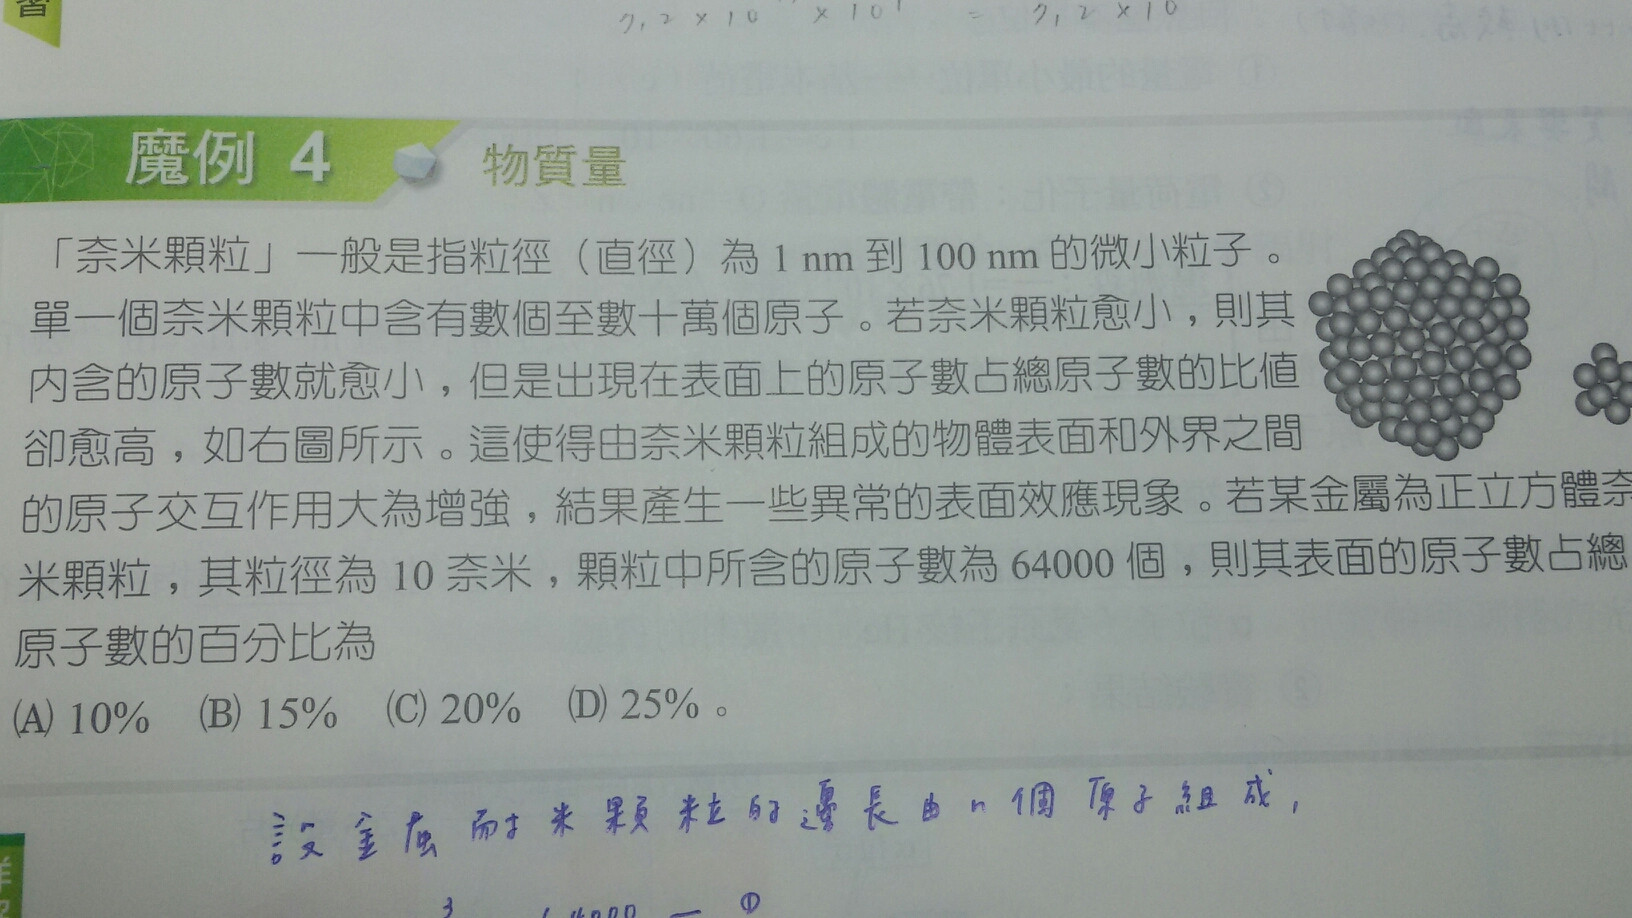 習
7.2 × 10 × 10¹ = 7.2 × 10
魔例 4 物質量
「奈米顆粒」一般是指粒徑（直徑）為 1 nm 到 100 nm 的微小粒子。
單一個奈米顆粒中含有數個至數十萬個原子。若奈米顆粒愈小，則其
內含的原子數就愈小，但是出現在表面上的原子數占總原子數的比值
卻愈高，如右圖所示。這使得由奈米顆粒組成的物體表面和外界之間
的原子交互作用大為增強，結果產生一些異常的表面效應現象。若某金屬為正立方體奈
米顆粒，其粒徑為 10 奈米，顆粒中所含的原子數為 64000 個，則其表面的原子數占總
原子數的百分比為
(A) 10% (B) 15% (C) 20% (D) 25%。
設金屬耐米顆粒的邊長由n個原子組成,
詳
3 64000 ①